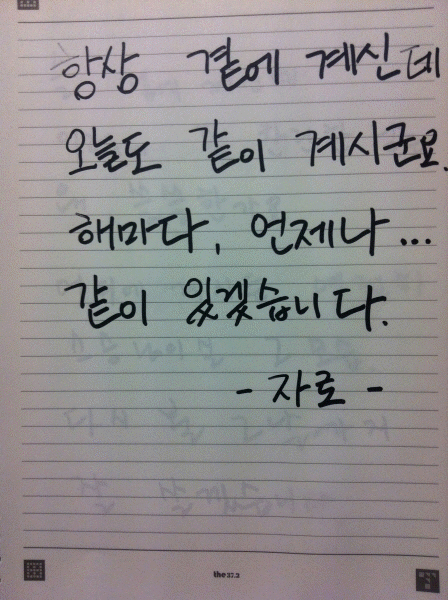 항상 곁에 계신데
오늘도 같이 계시군요.
해마다, 언제나...
같이 있겠습니다.
- 자로 -
the 27.2